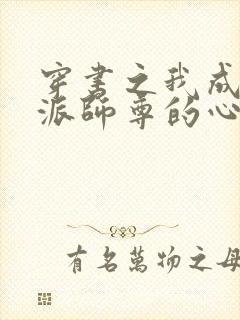 穿书之我成
派师尊的心
有名萬物之母